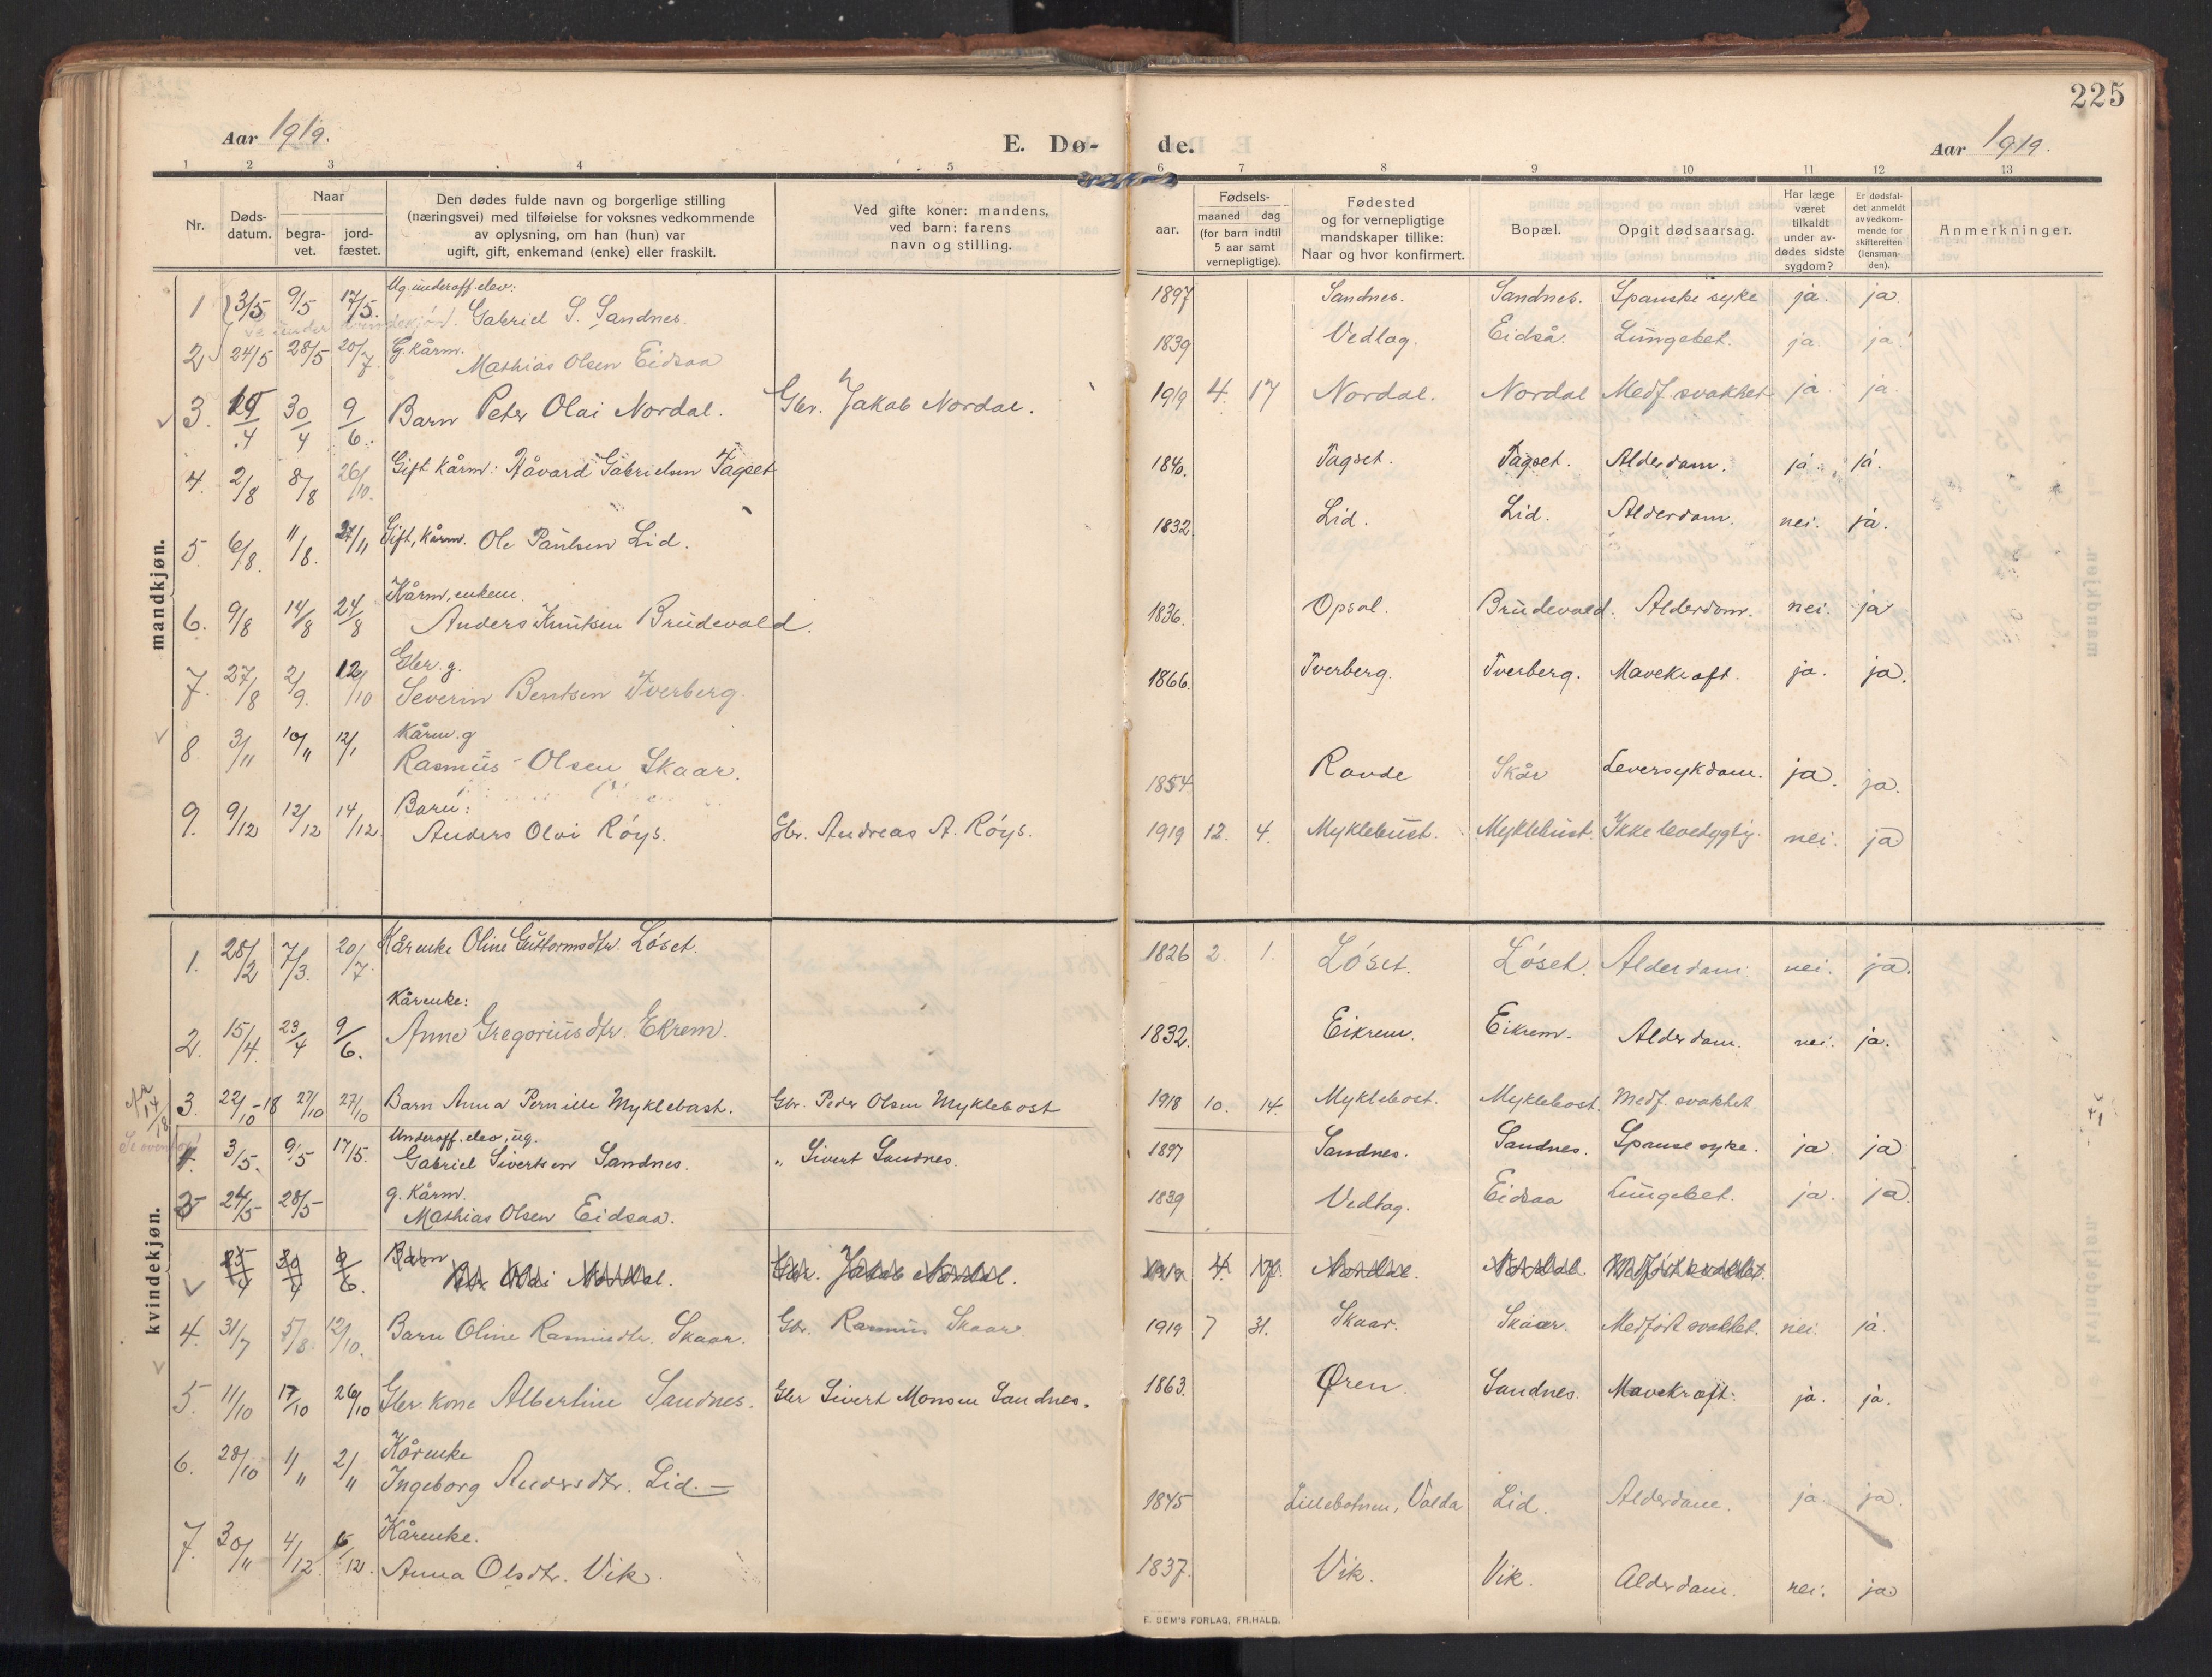 225
Aar 1919. E. Dø- de. Aar 1919.
1 2 3 4 5 6 7 8 9 10 11 12 13
Nr. Døds-datum. Naar begra-vet. jord-fæstet. Den dødes fulde navn og borgerlige stilling (næringsvei) med tilføielse for voksnes vedkommende av oplysning, om han (hun) var ugift, gift, enkemand (enke) eller fraskilt. Ved gifte koner: mandens, ved barn: farens navn og stilling. Fødsels- aar. maaned dag (for barn indtil 5 aar samt vernepligtige). Fødested og for vernepligtige mandskaper tillike: Naar og hvor konfirmert. Bopæl. Opgit dødsaarsag. Har læge været tilkaldt under av-dødes sidste sygdom? Er dødsfal-det anmeldt av vedkom-mende for skifteretten (lensman-den). Anmerkninger.
mandkjøn.
Ug. underoff. elev:
1 3/5 9/5 17/5. Gabriel S. Sandnes. 1897 Sandnes. Sandnes. Spanske syke ja. ja.
G. kårm.
2 24/5 28/5 20/7. Mathias Olsen Eidsaa 1839 Vedlag. Eidså. Lungebet. ja. ja.
3. 30/4 9/6. Barn Peter Olai Nordal. Gbr. Jakob Nordal. 1919 4. 17 Nordal. Nordal Medf. svakhet ja. ja.
4. 2/8 8/8 26/10. Gift kårm: Håvard Gabrielsen Tagset 1840. Tagset. Tagset. Alderdom. ja. ja.
5. 6/8. 11/8. 27/11 Gift, kårm. Ole Paulsen Lid. 1832 Lid. Lid. Alderdom. nei. ja.
Kårm, enkem.
6. 9/8 14/8 24/8 Anders Knutsen Brudevold. 1836. Opsal. Brudevold. Alderdom. nei. ja
Gbr. g.
7. 27/8 2/9. 12/10 Severin Bentsen Tverberg. 1866. Tverberg. Tverberg. Mavekræft. ja. ja.
Kårm. g
8. 3/11 10/11 12/1 Rasmus Olsen Skaar. 1854 Ravde Skår Leversykdom. ja. ja.
Barn:
9. 9/12 12/12 14/12. Anders Olvi Röys. Gbr. Andreas A. Röys. 1919 12. 4. Myklebust. Myklebust. Ikke levedygtig. nei. ja
kvindekjøn.
1. 28/2 7/3. 20/7. Kårenke Oline Guttormsdtr. Löset. 1826 2. 1. Löset. Löset. Alderdom. nei. ja.
Kårenke:
2. 15/4. 23/4 9/6. Anne Gregoriusdtr. Ekrem. 1832. Eikrem. Eikrem. Alderdom. nei. ja.
3. 22/10-18 27/10 27/10 Barn Anna Pernille Myklebast. Gbr. Peder Olsen Myklebost 1918 10. 14. Myklebost. Myklebost. Medf. svakhet
Underoff. elev, ug.
4. 3/5. 9/5 17/5. Gabriel Sivertsen Sandnes. " Sivert Sandnes. 1897 Sandnes. Sandnes. Spanse syke. ja ja
g. Kårm.
24/5 28/5 Mathias Olsen Eidsaa. 1839 Vedlag. Eidsaa Lungebet. ja. ja.
Barn
4 30/4 9/6. Peter Olai Nordal. Gbr. Jakob Nordal. 1919 4. 17. Nordal. Nordal. Medfödt svakhet.
4. 31/7 5/8. 12/10. Barn Oline Rasmusdtr. Skaar. Gbr. Rasmus Skaar 1919 7 31. Skaar. Skaar. Medfödt svakhet. nei. ja.
5. 11/10 17/10 26/10 Gbr. kone Albertine Sandnes. Gbr Sivert Monsen Sandnes. 1863. Ören. Sandnes. Mavekræft. ja. ja.
Kårenke
6. 28/10 1/11 2/11 Ingeborg Andersdtr. Lid. 1845 Lillebotnen, Volda Lid. Alderdom. ja. ja.
Kårenke.
7. 30/11 4/12. 6/12. Anna Olsdtr. Vik. 1837. Vik. Vik. Alderdom. nei. ja.
E. SEM'S FORLAG, FR.HALD.